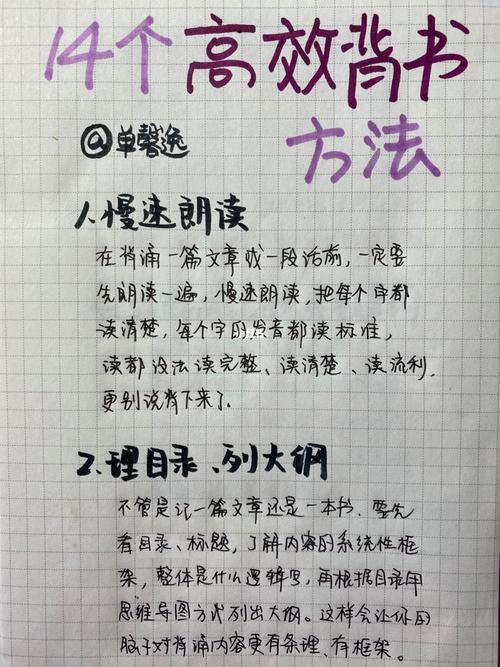 14个高效背书
方法
@单馨逸
1.慢速朗读
在背诵一篇文章或一段话前,一定要
先朗读一遍,慢速朗读,把每个字都
读清楚,每个字的发音都读标准,
读都没法读完整、读清楚、读流利,
更别说背下来了.
2.理目录、列大纲
不管是记一篇文章还是一本书.要先
看目录、标题,了解内容的系统性框
架,整体是什么逻辑写,再根据目录用
思维导图方式列出大纲。这样会让你的
脑子对背诵内容更有条理、有框架。